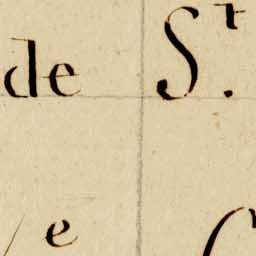 de St.
e